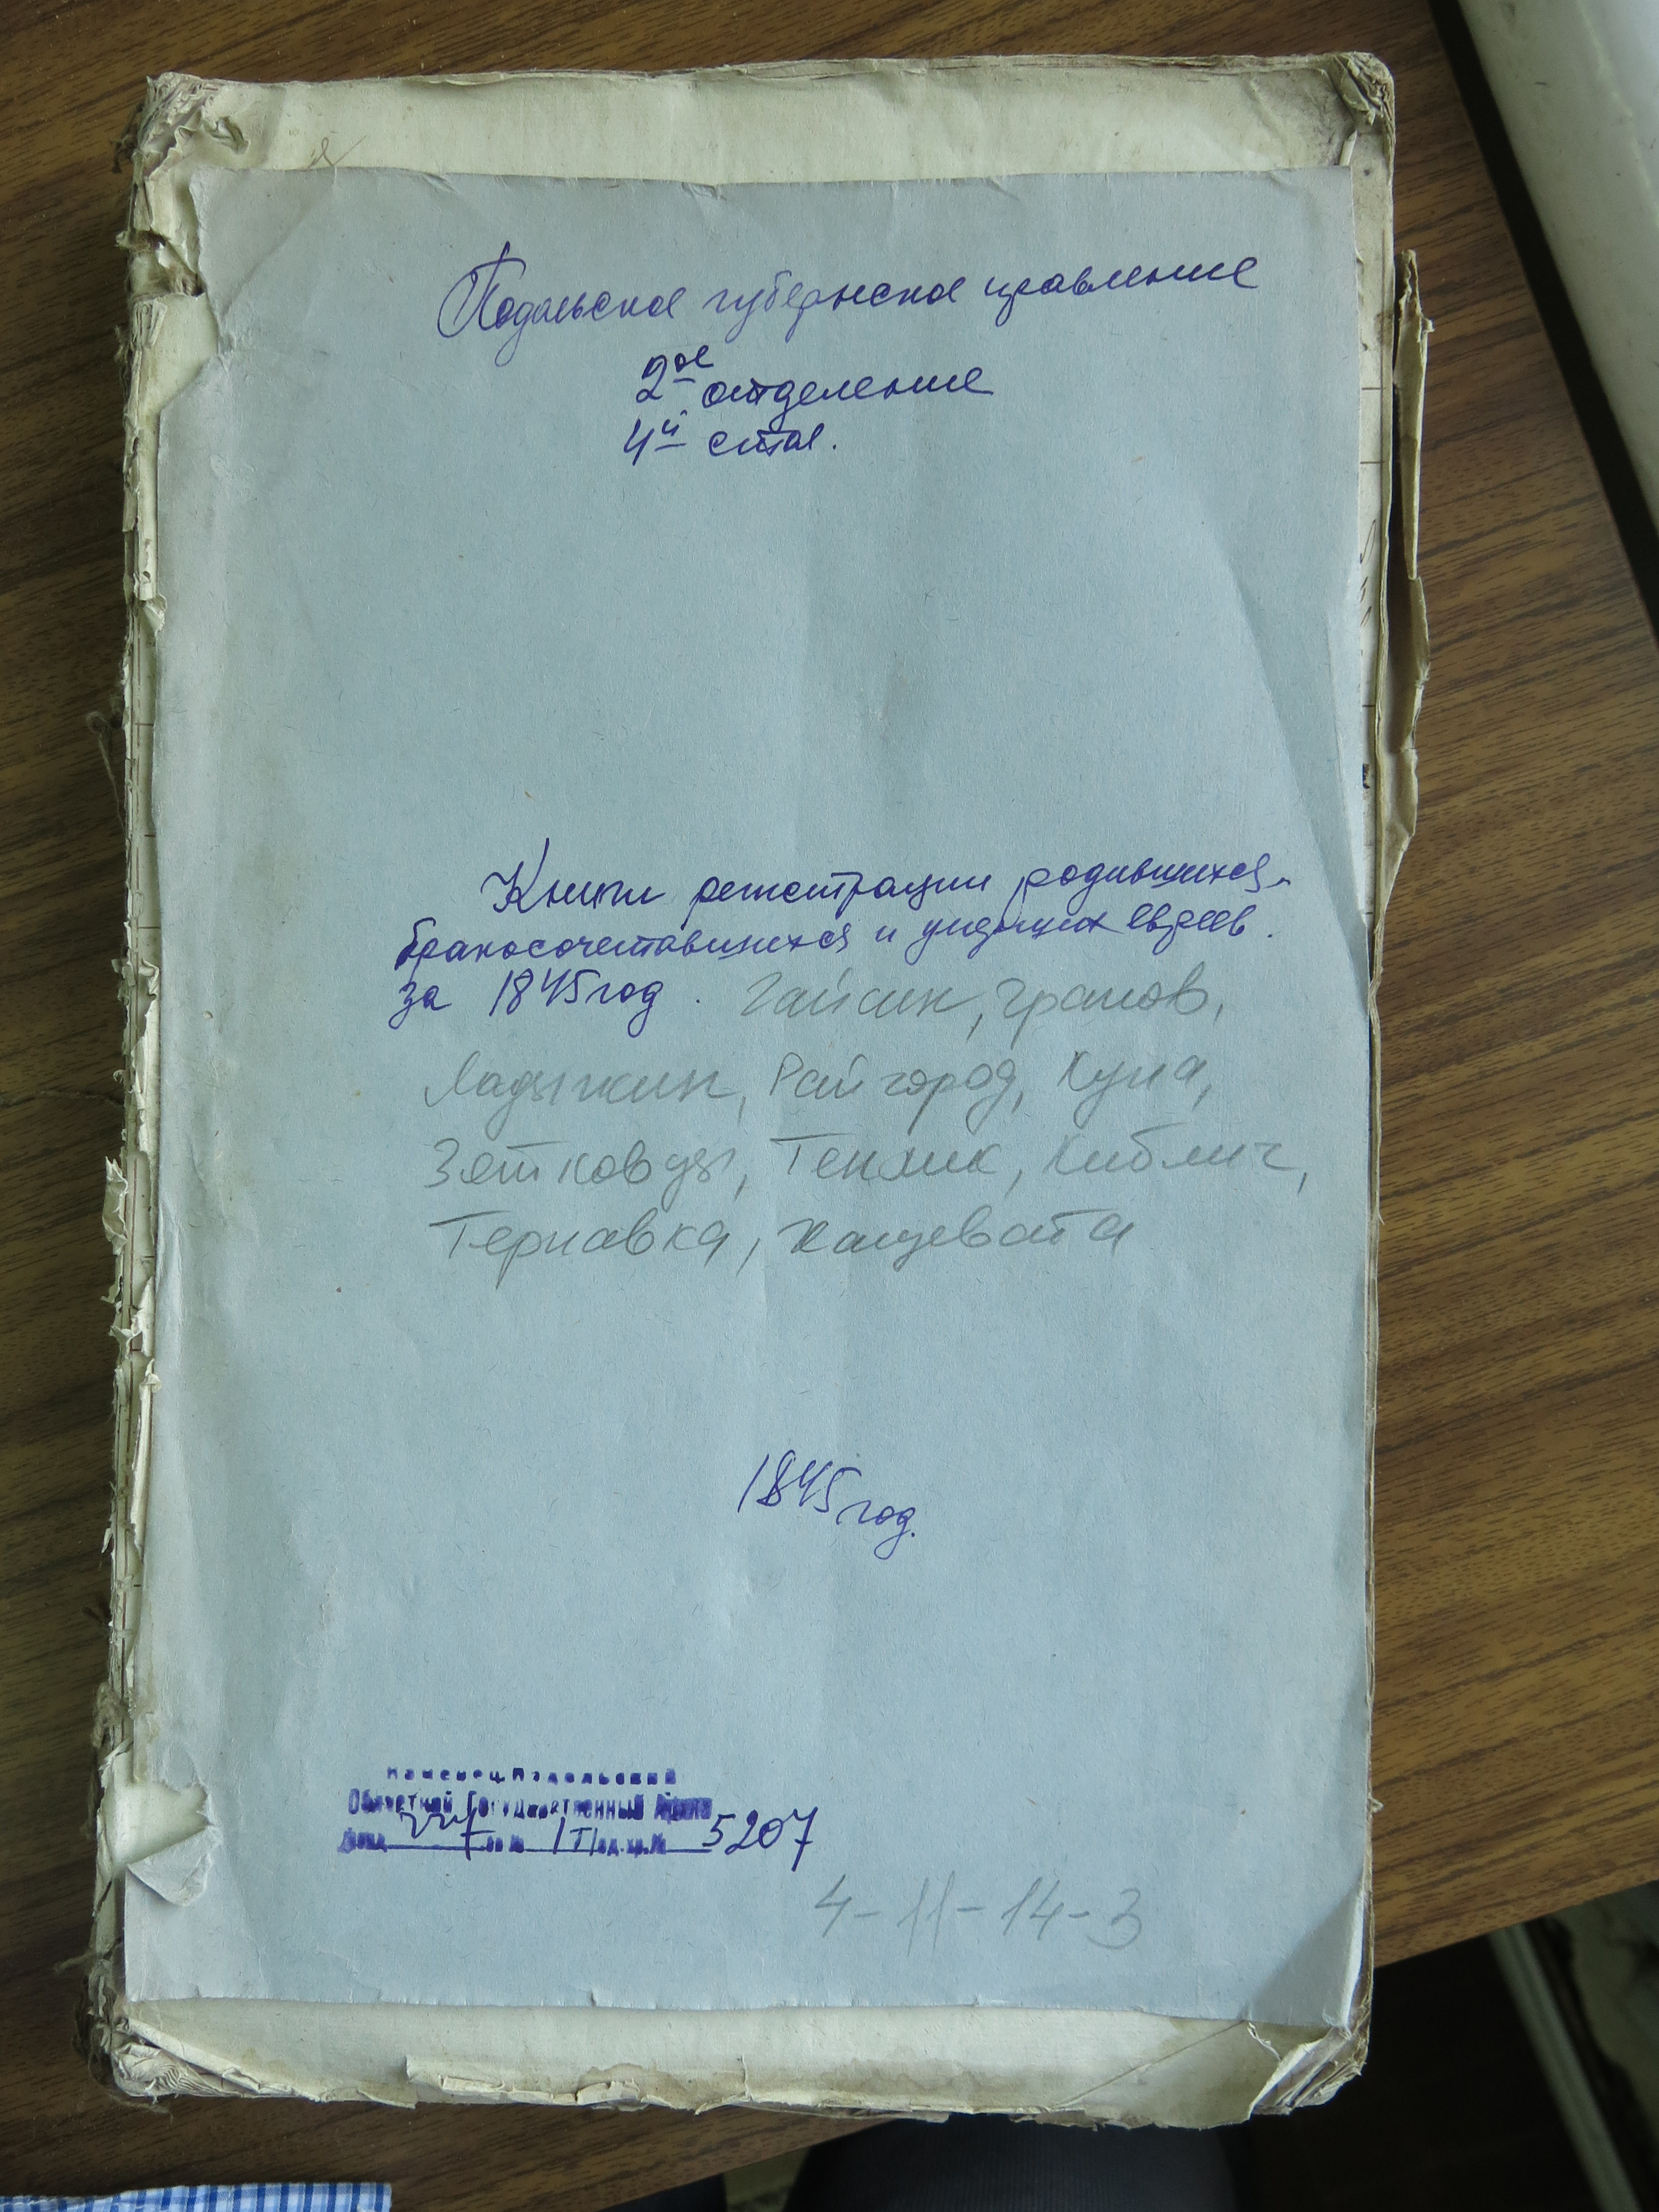 Подольское губернское правление
2ое отделение
4й стол.
Книги регистрации родившихся,
бракосочетавшихся и умерших евреев
за 1845 год. Гайсин, Гранов,
Ладыжин, Райгород, Куна,
Зятковцы, Теплик, Киблич,
Тернавка, Хащевата
1845 год.
Каменец-Подольский
Областной Государственный Архив
Фонд 227 оп № 1Т1 ед. хр. № 5207
4-11-14-3